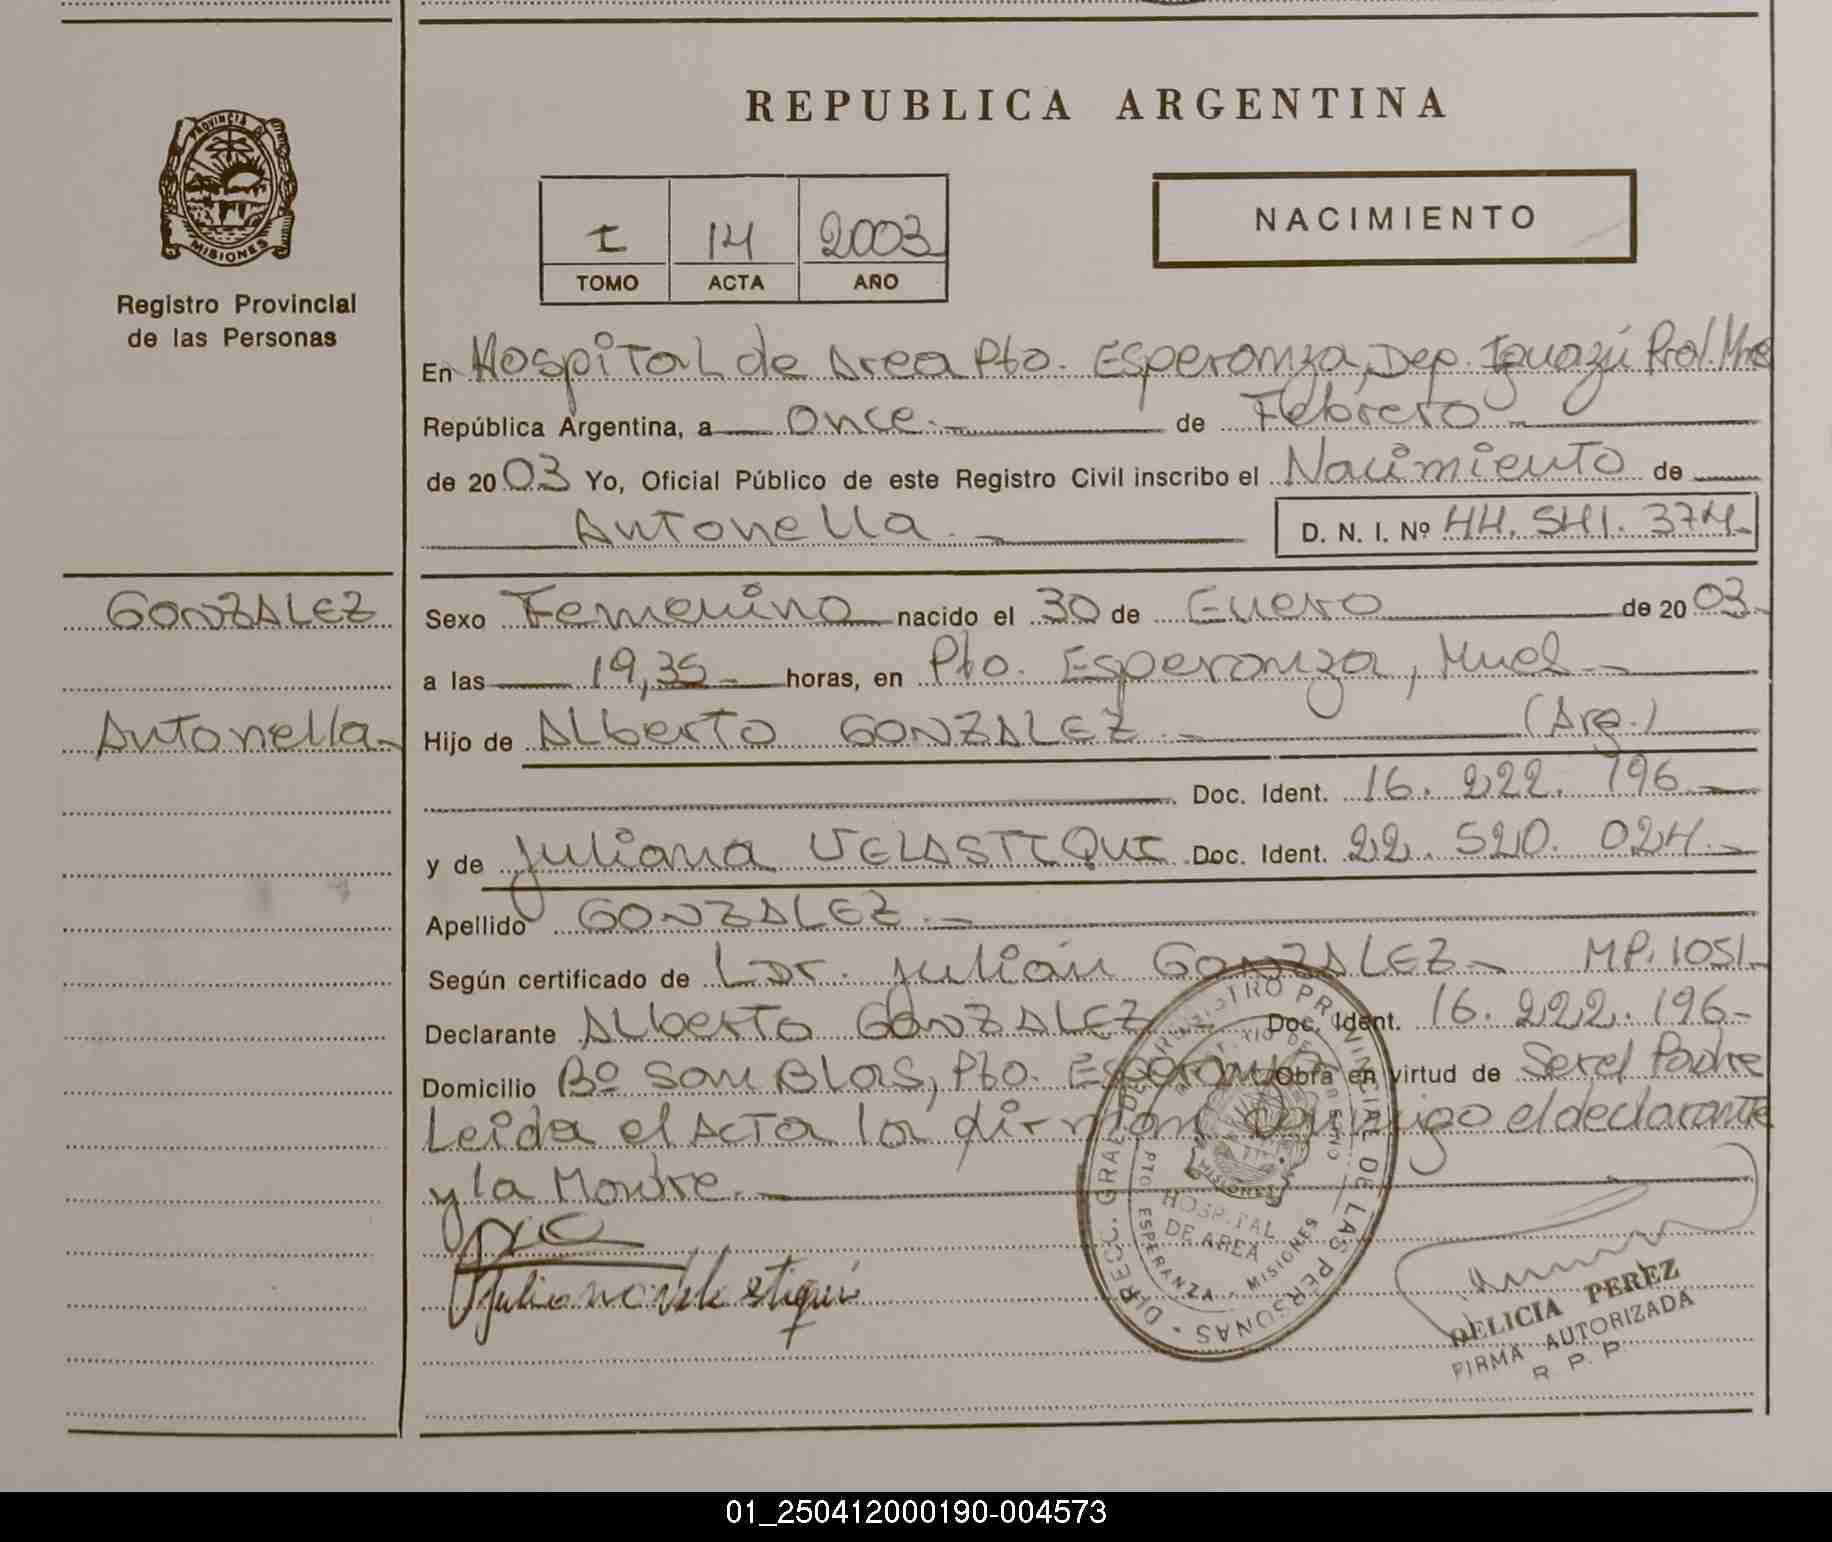 REPUBLICA ARGENTINA
PROVINCIA DE
MISIONES
Registro Provincial
de las Personas
I 14 2003
TOMO ACTA AÑO
NACIMIENTO
En Hospital de Area Pto. Esperanza, Dep. Iguazú
República Argentina, a once.- de Febrero
de 2003 Yo, Oficial Público de este Registro Civil inscribo el Nacimiento de
Antonella.- D. N. I. Nº 44.541.374-
GONZALEZ
Antonella-
Sexo Femenino nacido el 30 de Enero de 2003-
a las 19,35- horas, en Pto. Esperanza, Mnes.-
Hijo de Alberto GONZALEZ.- (Arg.)
Doc. Ident. 16.222.196-
y de Juliana VELASTIQUI Doc. Ident. 22.520.024.-
Apellido GONZALEZ.-
Según certificado de Dr. Julián GONZALEZ- MP.1051-
Declarante Alberto GONZALEZ Doc. Ident. 16.222.196-
Domicilio Bº San Blas, Pto. Esperanza Obra en virtud de Ser el Padre
Leida el ACTA la firman conmigo el declarante
y la Madre.-
Juliana Velastiqui
DIRECC. GRAL. DE REGISTRO PROVINCIAL DE LAS PERSONAS
MISIONES
HOSPITAL
DE AREA
PTO. ESPERANZA - MISIONES
DELICIA PEREZ
FIRMA AUTORIZADA
R. P. P.
01_250412000190-004573